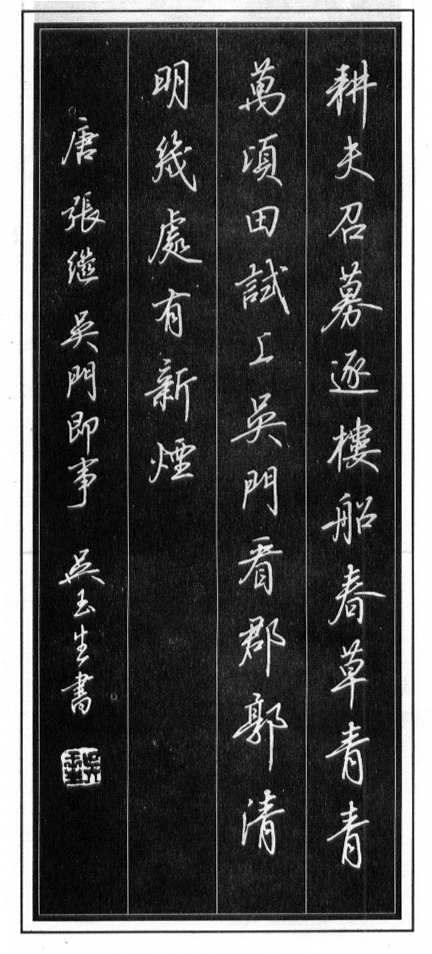 耕夫召募逐樓船春草青青
萬頃田試上吳門看郡郭清
明幾處有新煙
唐張繼吳門即事 吳玉生書